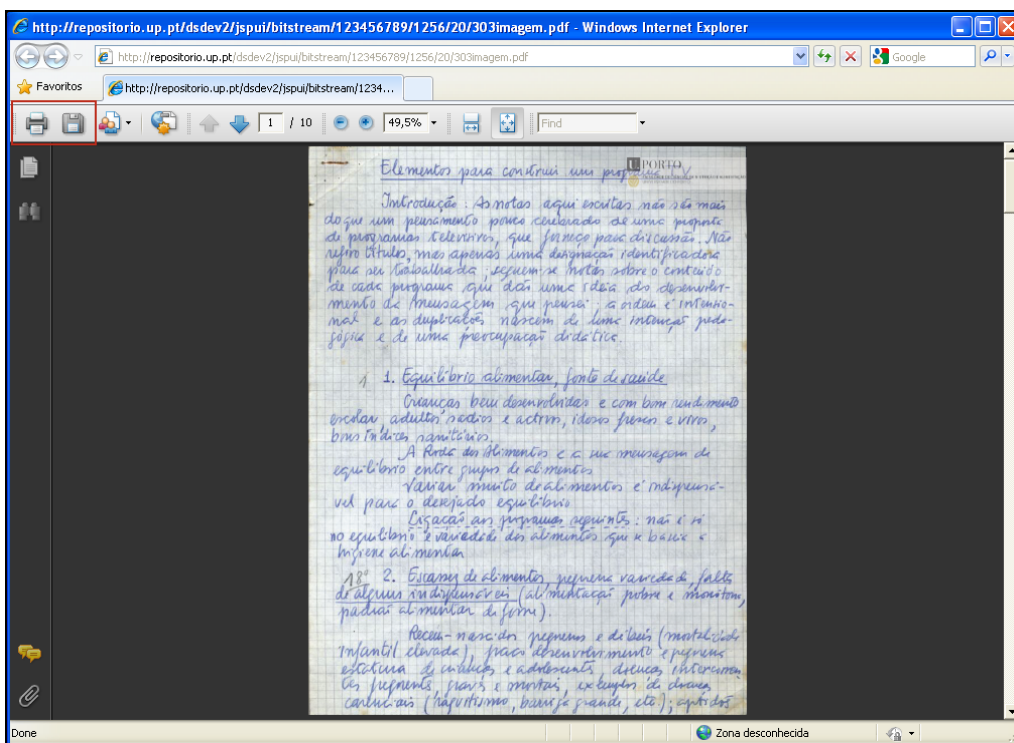 http://repositorio.up.pt/dsdev2/jspui/bitstream/123456789/1256/20/303imagem.pdf - Windows Internet Explorer
http://repositorio.up.pt/dsdev2/jspui/bitstream/123456789/1256/20/303imagem.pdf
Google
Favoritos
http://repositorio.up.pt/dsdev2/jspui/bitstream/1234...
1 / 10
49,5%
Find
Elementos para construir um programa TV
U.PORTO
Introdução: As notas aqui escritas não são mais
do que um pensamento pouco cerebrado de uma proposta
de programas televisivos, que forneço para discussão. Não
refiro títulos, mas apenas uma designação identificadora
para ser trabalhada; seguem-se notas sobre o conteúdo
de cada programa que dão uma ideia do desenvolvi-
mento da mensagem que pensei; a ordem é intencio-
nal e as duplicações nascem de uma intenção peda-
gógica e de uma preocupação didática.
1 1. Equilíbrio alimentar, fonte de saúde
Crianças bem desenvolvidas e com bom rendimento
escolar, adultos sadios e activos, idosos frescos e vivos,
bons índices sanitários.
A Roda dos Alimentos e a sua mensagem de
equilíbrio entre grupos de alimentos
Variar muito de alimentos é indispensá-
vel para o desejado equilíbrio
Ligação aos programas seguintes: não é só
no equilíbrio e variedade dos alimentos que se baseia a
higiene alimentar
18º 2. Escassez de alimentos, pequena variedade, falta
de alguns indispensáveis (alimentação pobre e monótona,
padrão alimentar de fome).
Recem-nascidos pequenos e débeis (mortalidade
infantil elevada), fraco desenvolvimento e pequena
estatura de crianças e adolescentes, doenças
frequentes, graves e mortais, exemplos de doenças
carenciais (raquitismo, barriga grande, etc.);
Done
Zona desconhecida